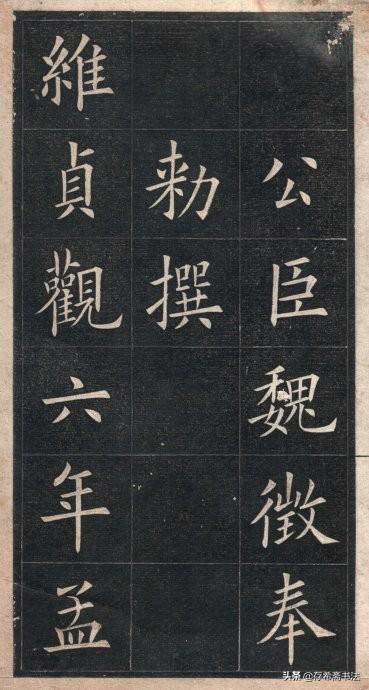 公臣魏徵奉
勅撰
維貞觀六年孟
头条@存希斋书法